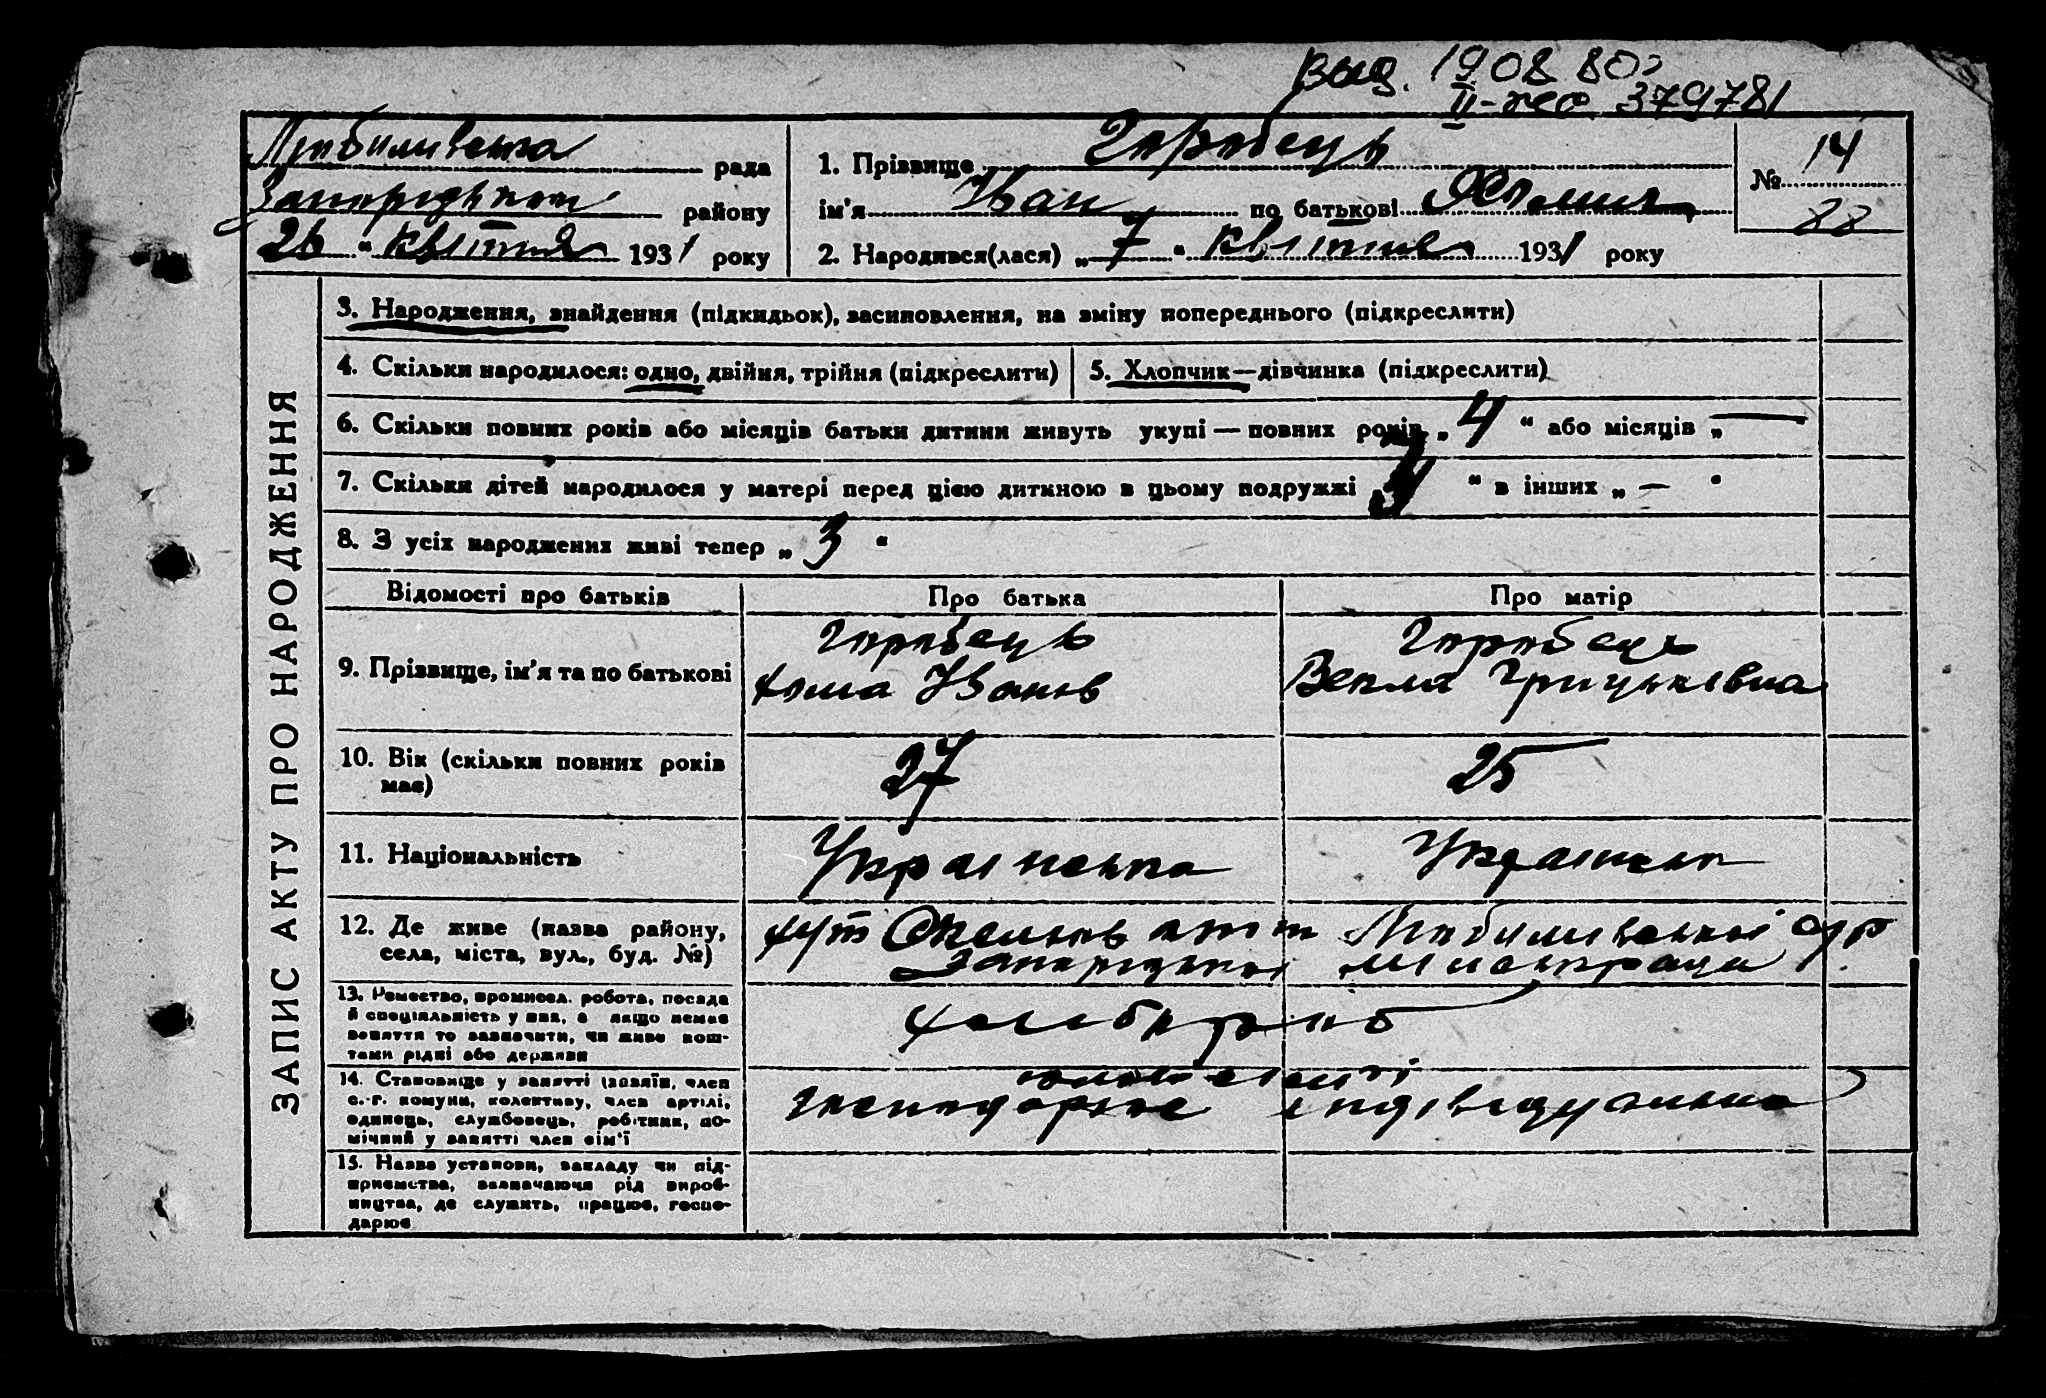 Выд. 19 08 80г
II-жс 379781
Любимівська рада
Запорізького району
„26“ квітня 1931 року
1. Прізвище Горобець
ім'я Іван по батькові Хомич
2. Народився(лася) „7“ квітня 1931 року
№ 14
88
ЗАПИС АКТУ ПРО НАРОДЖЕННЯ
3. Народження, знайдення (підкидьок), засиновлення, на зміну попереднього (підкреслити)
4. Скільки народилося: одно, двійня, трійня (підкреслити)
5. Хлопчик—дівчинка (підкреслити)
6. Скільки повних років або місяців батьки дитини живуть укупі — повних років „4“ або місяців „—“
7. Скільки дітей народилося у матері перед цією дитиною в цьому подружжі “ в інших „—“
8. З усіх народжених живі тепер „3“
Відомості про батьків
Про батька
Про матір
9. Прізвище, ім'я та по батькові
Горобець
Хома Іванів
Горобець
Векла Грицьківна
10. Вік (скільки повних років
має)
27
25
11. Національність
Українська
Українська
12. Де живе (назва району,
села, міста, вул., буд. №)
хут Любимівської с/р
Запорізької міськради
13. Ремество, промисел, робота, посада
й спеціяльність у них, а якщо немає
заняття то зазначити, чи живе кош-
тами рідні або держави
хлібороб
14. Становище у занятті (хазяїн, член
с.-г. комуни, колективу, член артілі,
одинець, службовець, робітник, по-
мічний у занятті член сім'ї
індівідуально
15. Назва установи, закладу чи під-
приємства, зазначаючи рід вироб-
ництва, де служить, працює, госпо-
дарює